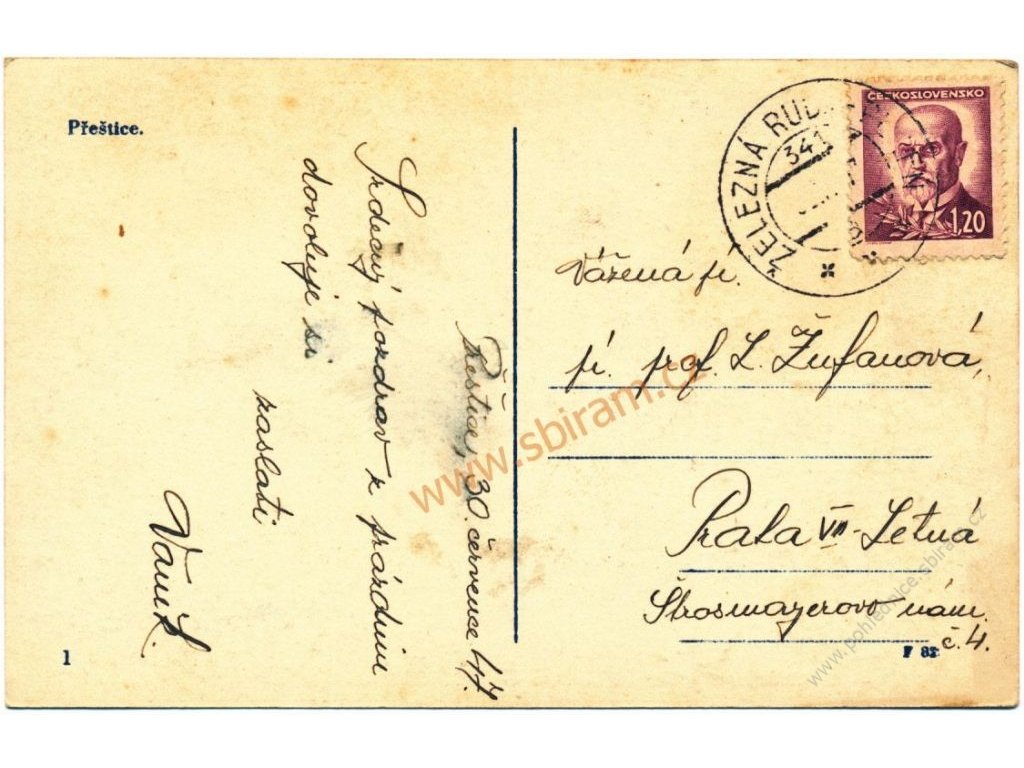 Přeštice.
Přeštice, 30. července 47.
Srdečný pozdrav z prázdnin
dovoluje si
zaslati
1
ŽELEZNÁ RUDA
341
ČESKOSLOVENSKO
1,20
Vážená pí.
pí. prof. L. Žufanová,
Praha VII - Letná
Štrosmayerovo nám.
č. 4.
F 82
www.sbiram.cz
www.pohlednice.sbiram.cz